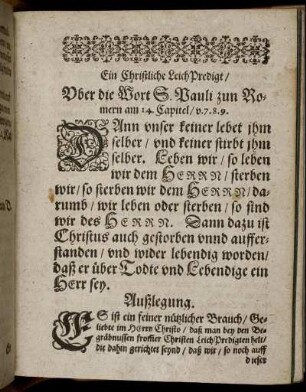 Ein Christliche LeichPredigt/
Vber die Wort S. Pauli zun Ro-
mern am 14. Capitel/ v. 7. 8. 9.
DAnn vnser keiner lebet jhm
selber/ vnd keiner stirbt jhm
selber. Leben wir/ so leben
wir dem HERRN/ sterben
wir/ so sterben wir dem HERRN/ da-
rumb/ wir leben oder sterben/ so sind
wir des HERRN. Dann dazu ist
Christus auch gestorben vnnd auffer-
standen/ vnd wider lebendig worden/
daß er über Todte vnd Lebendige ein
Herr sey.
Außlegung.
ES ist ein feiner nützlicher Brauch/ Ge-
liebte im HErrn Christo/ daß man bey den Be-
gräbnussen frommer Christen LeichPredigten helt/
die dahin gerichtet seynd/ daß wir/ so noch auff
dieser